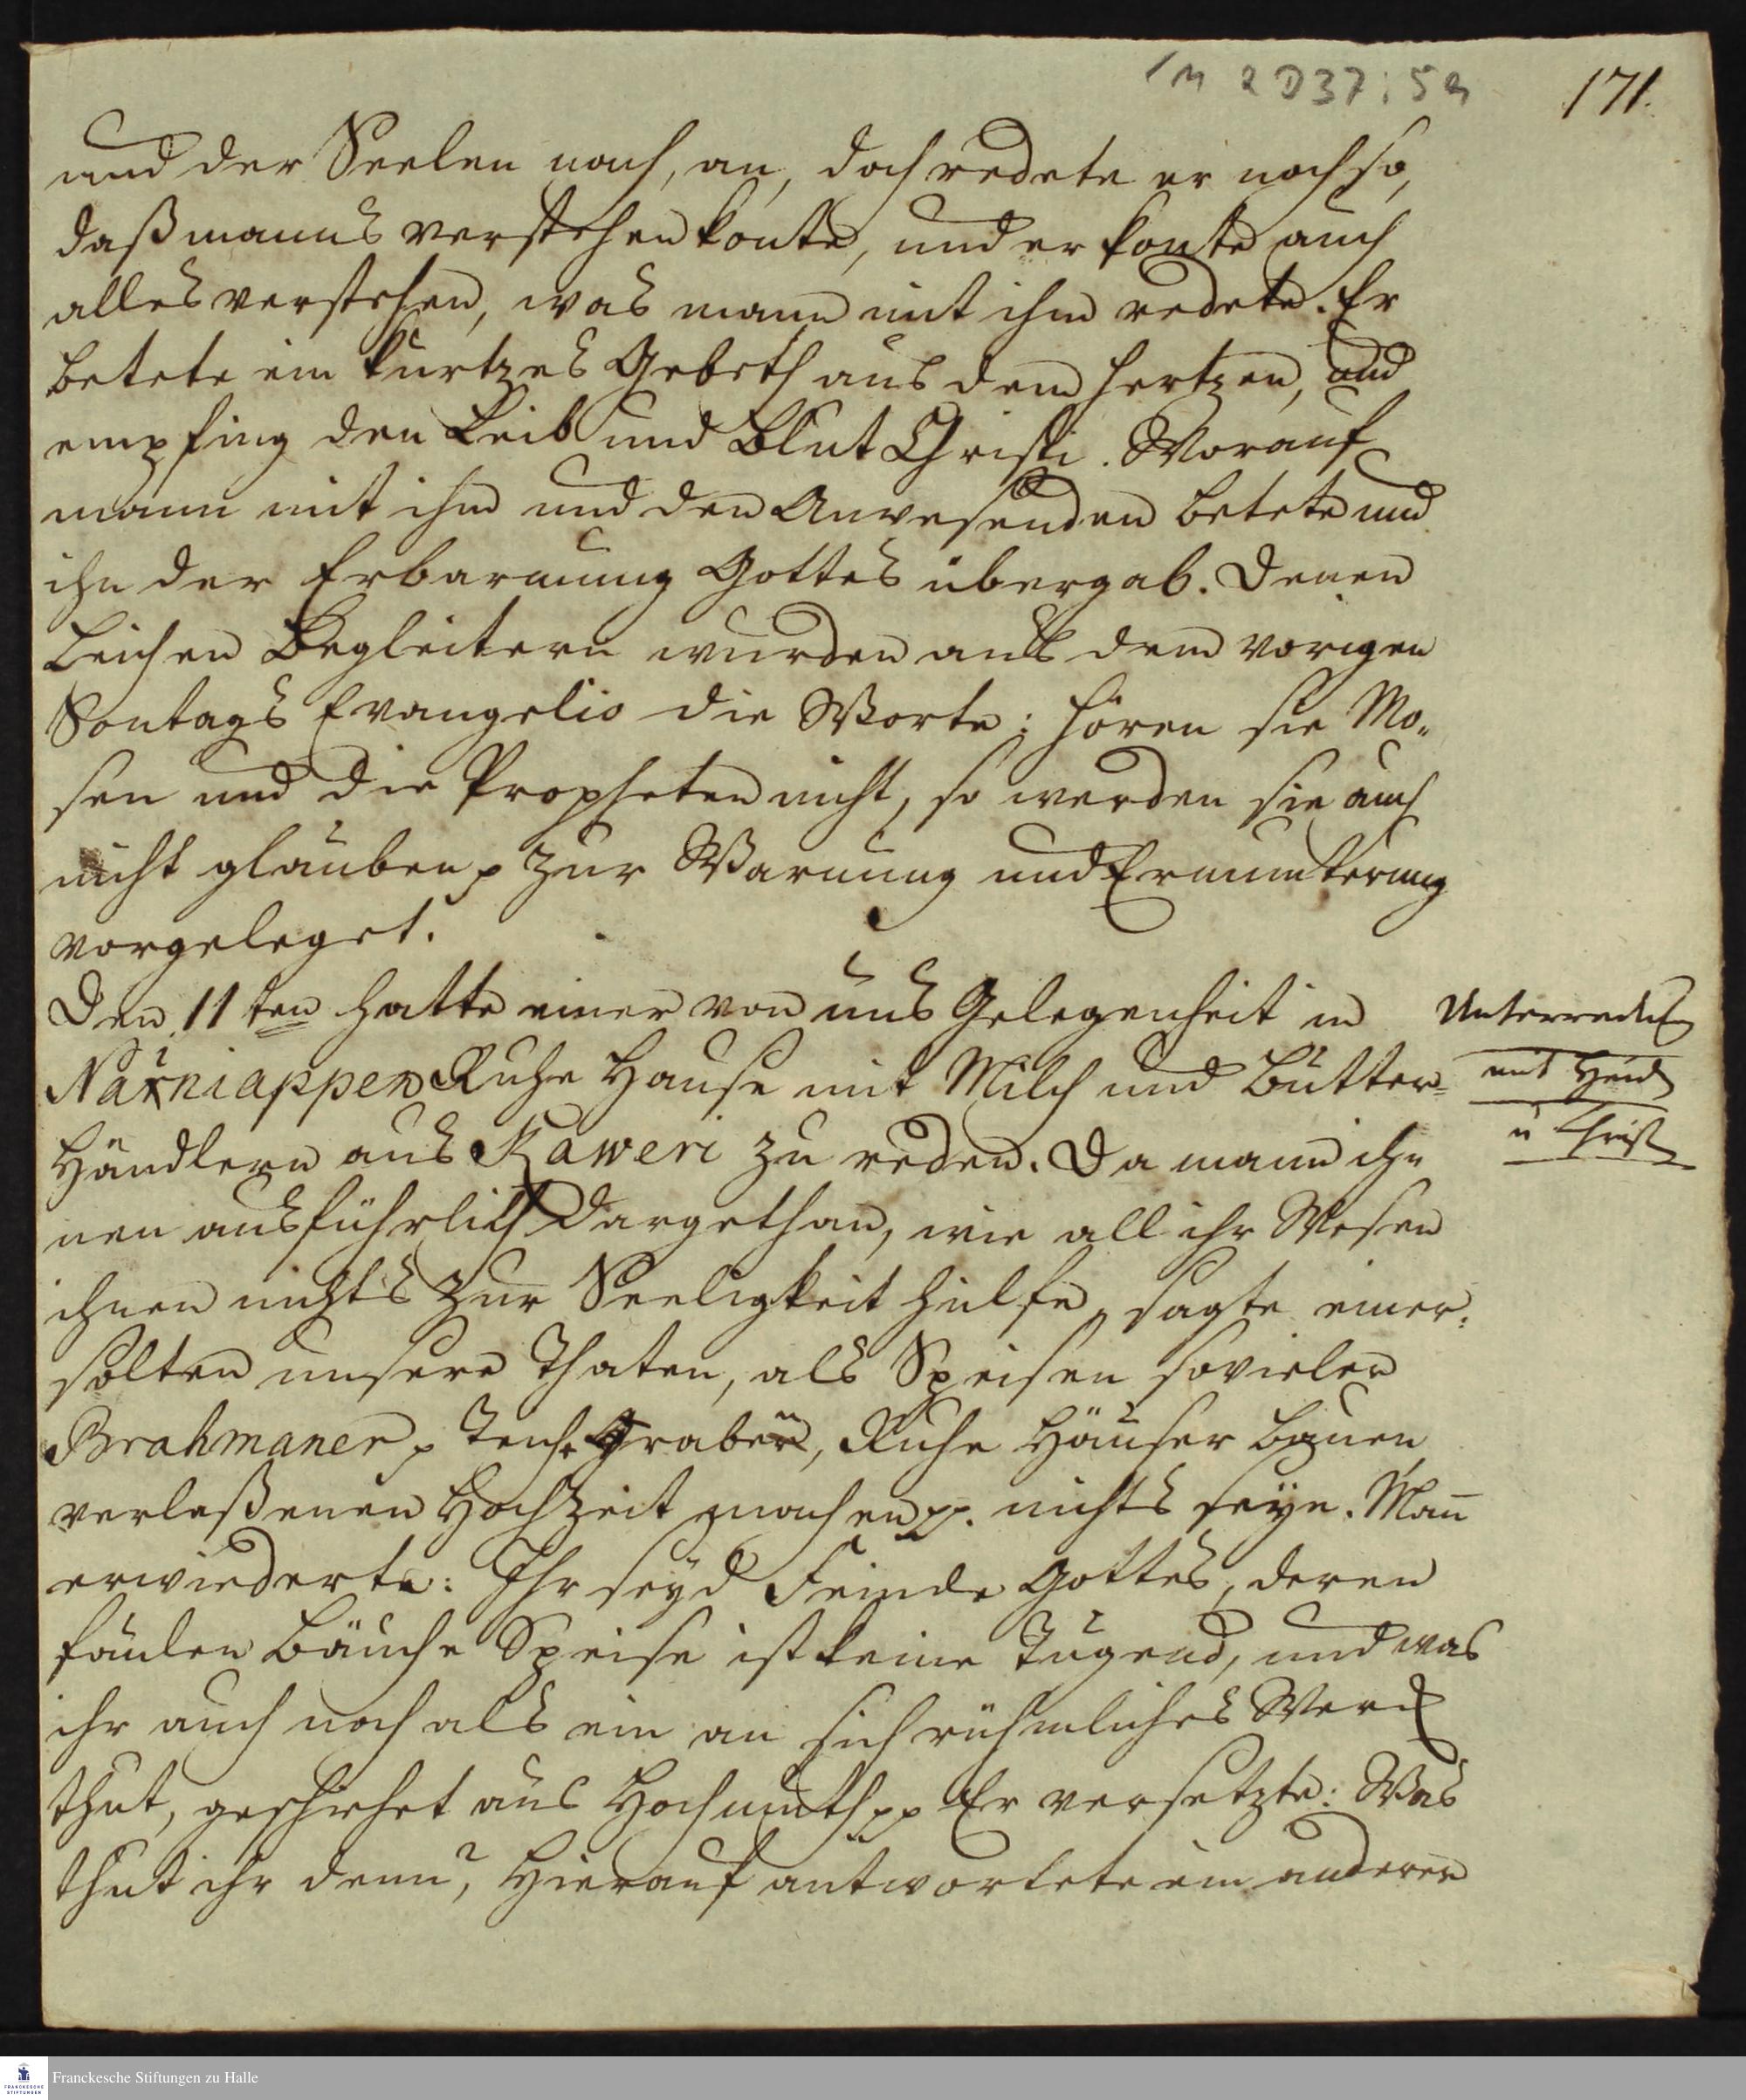 1 M 2 D 37 : 5 a
171.
und der Seelen nach, an, doch redete er noch so,
daß manns verstehen konte, und er konte auch
alles verstehen, was mann mit ihm redete. Er
betete ein kurtzes Gebeth aus dem Hertzen, und
empfing den Leib und Blut Christi. Worauf
mann mit ihm und den Anwesenden betete und
ihn der Erbarmung Gottes übergab. Denen
Leichen Begleitern wurden aus dem vorigen
Sontags Evangelio die Worte: hören sie Mo„
sen und die Propheten nicht, so werden sie auch
nicht glauben p zur Warnung und Ermunterung
vorgeleget.
Den 11ten hatte einer von uns Gelegenheit in
Narniappen Ruhe Hause mit Milch und Butter=
Händlern aus Kaweri zu reden. Da mann ih„
nen ausführlich dargethan, wie all ihr Wesen
ihnen nichts zur Seeligkeit hülfe, sagte einer:
solten unsere Thaten, als Speisen sovieler
Brahmaner p Teiche graben, Ruhe Häuser bauen,
verlaßenen Hochzeit machen pp. nichts seyn. Mañ
erwiederte: Ihr seyd Feinde Gottes, deren
faulen Bäuche Speise ist keine Tugend, und was
ihr auch noch als ein an sich rühmliches Werck
thut, geschiehet aus Hochmuth pp Er versetzte: Was
thut ihr denn? Hierauf antwortete ein anderer
Unterredung
mit Heid
u Christ
Franckesche Stiftungen zu Halle
FRANCKESCHE
STIFTUNGEN